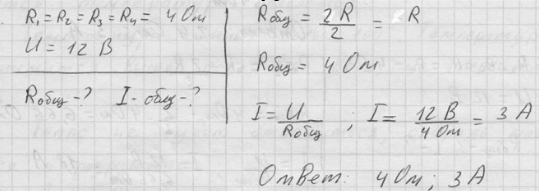 R₁ = R₂ = R₃ = R₄ = 4 Ом
U = 12 В
Rобщ - ? I - общ - ?
Rобщ = 2R/2 = R
Rобщ = 4 Ом
I = U/Rобщ ; I = 12 В/4 Ом = 3 А
Ответ: 4 Ом; 3 А